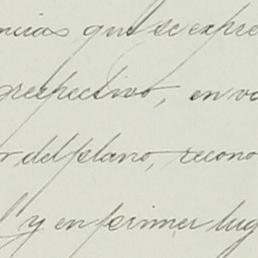 ncias que se expre
respectivo, en vo
r del plano, recono
y en primer lug